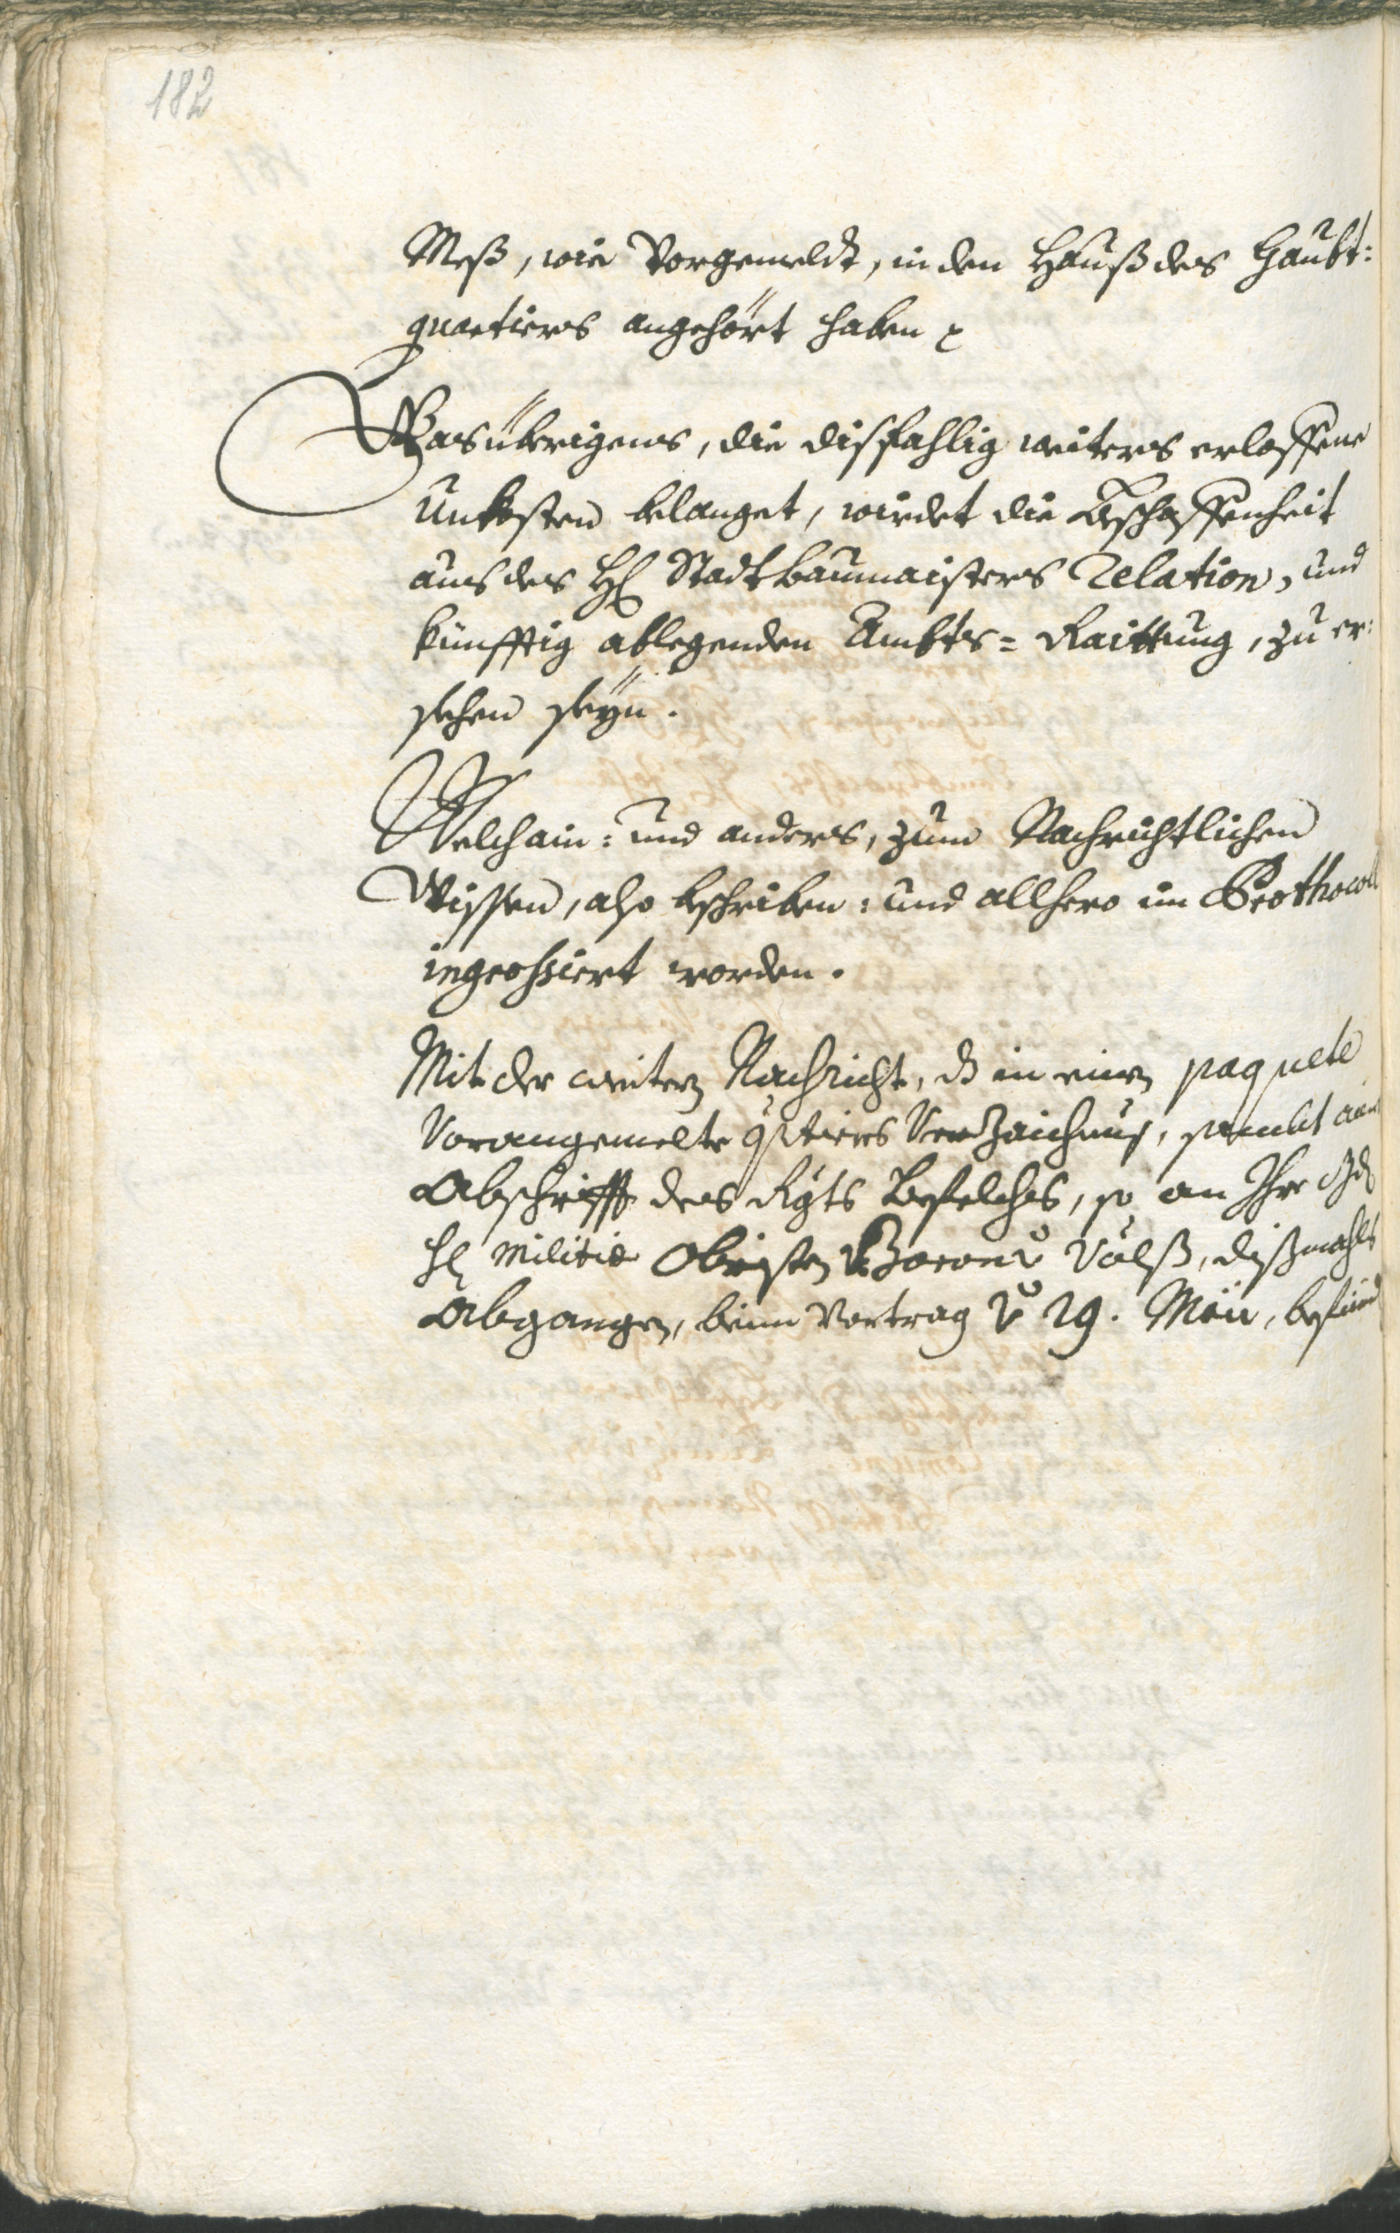 182
Meß, wie Vorgemeldt, in den Hauß des Haubt:
quartiers angehört haben
Was übrigens, die dißfahlig weiters erloffene
Unkosten belanget, wirdet die Beschaffenheit
aus des H Stadtbaumaisters Relation, und
künfftig ablegenden Ambts= Raittung, zu er:
sehen seÿn.
Welch ain: und anders, zum Nachrichtlichen
Wissen, also beschriben: und allhero im Prothocoll
ingrossiert worden.
Mit der weitern Nachricht, dß in einen paquete
Vorangemelte Verzaichnuß, sambt ain
Abschrifft des Befelchs, so an Ihr
H Militie Obristen Baron Völß, dißmahls
Abgangen, beim Vortrag 29. Maii, befind